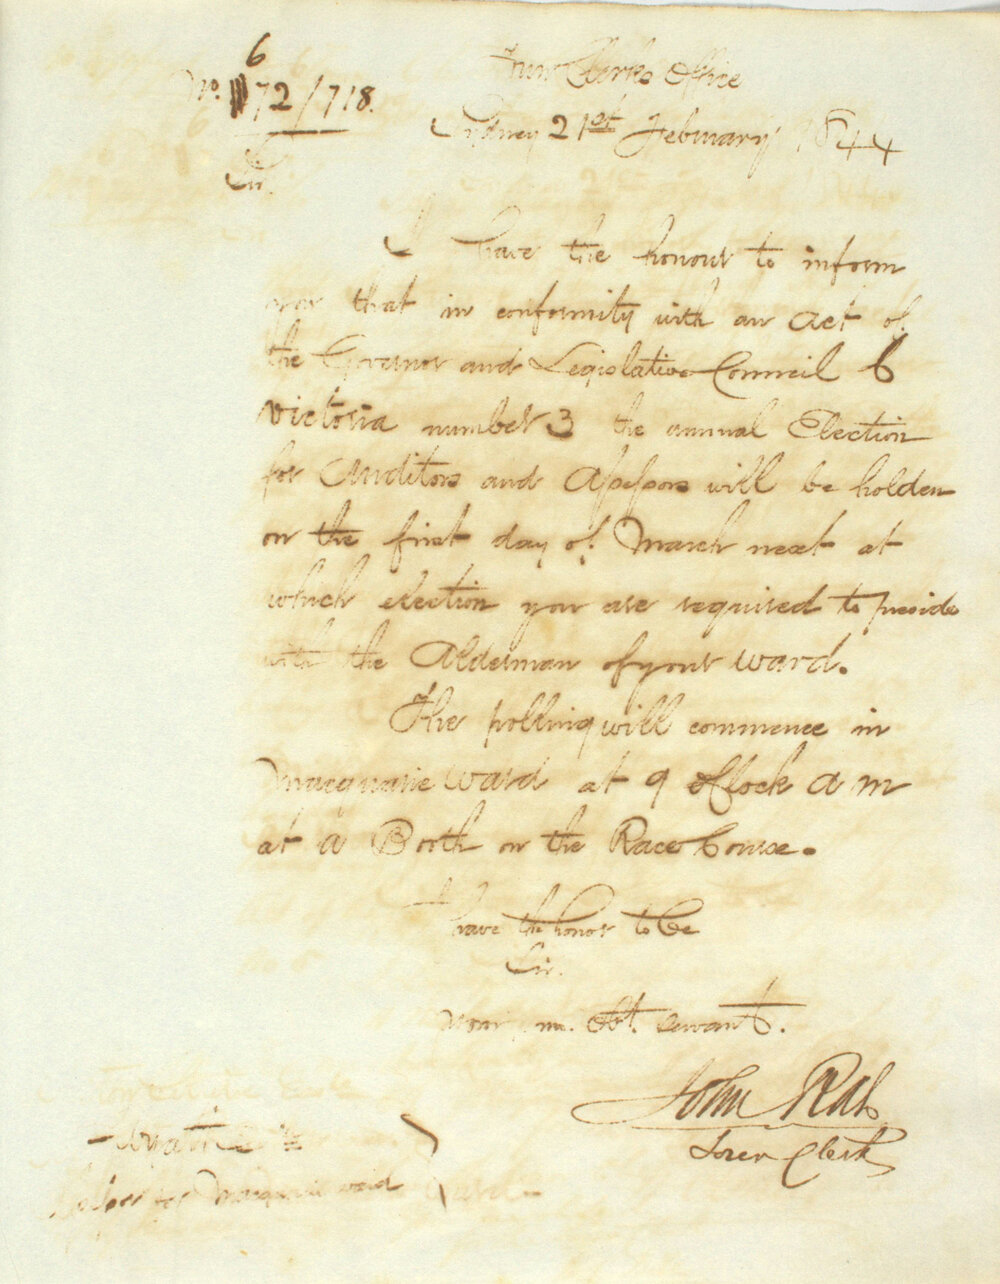 6
No. 72/718.
Town Clerks Office
Sydney 21st February 1844
Sir.
I have the honour to inform
you that in conformity with an Act of
the Governor and Legislative Council 6
Victoria number 3 the annual Election
for Auditors and Assessors will be holden
on the first day of March next at
which election you are required to preside
with the Alderman of your Ward.
The polling will commence in
Macquarie Ward at 9 oClock a m
at a Booth on the Race Course.
I have the honor to be
Sir.
Your m. Obt. servant.
John Rae
Town Clerk
Assessor for Macquarie Ward